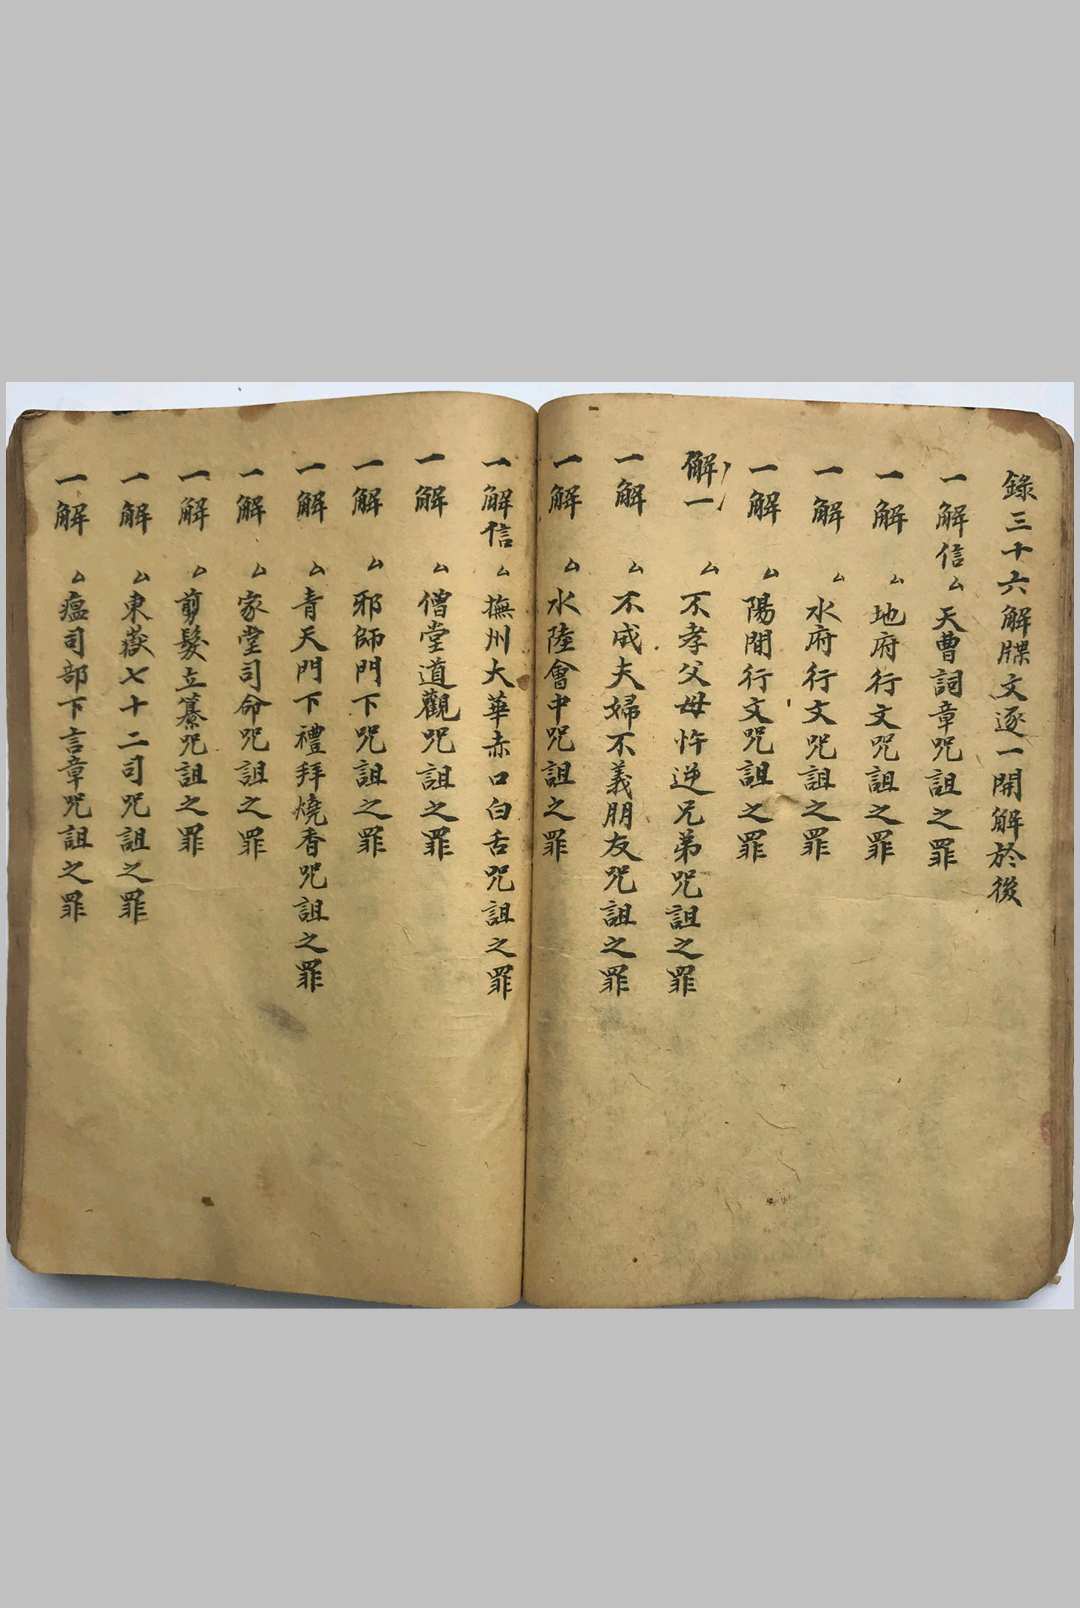 錄三十六解牒文逐一開解於後
一解信厶天曹詞章咒詛之罪
一解厶地府行文咒詛之罪
一解厶水府行文咒詛之罪
一解厶陽間行文咒詛之罪
解一厶不孝父母忤逆兄弟咒詛之罪
一解厶不成夫婦不義朋友咒詛之罪
一解厶水陸會中咒詛之罪
一解信厶撫州大華赤口白舌咒詛之罪
一解厶僧堂道觀咒詛之罪
一解厶邪師門下咒詛之罪
一解厶青天門下禮拜燒香咒詛之罪
一解厶家堂司命咒詛之罪
一解厶剪髮立纂咒詛之罪
一解厶東嶽七十二司咒詛之罪
一解厶瘟司部下言章咒詛之罪